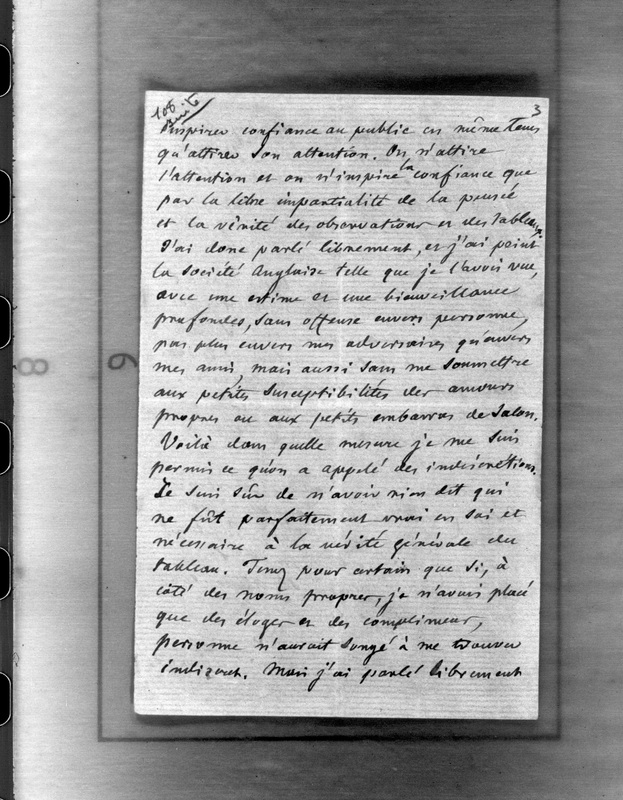 108 suite
3
inspirer confiance au public en même tems
qu'attirer son attention. On n'attire
l'attention et on n'inspire la confiance que
par la libre impartialité de la pensée
et la vérité des observations et des tableaux.
J'ai donc parlé librement, et j'ai peint
la société Anglaise telle que je l'avois vue,
avec une estime et une bienveillance
profondes, sans offense envers personne,
pas plus envers mes adversaires qu'envers
mes amis, mais aussi sans me soumettre
aux petites susceptibilités des amours
propres ou aux petits embarras de salon.
Voilà dans quelle mesure je me suis
permis ce qu'on a appelé des indiscrétions.
Je suis sûr de n'avoir rien dit qui
ne fût parfaitement vrai en soi et
nécessaire à la vérité générale du
tableau. Tenez pour certain que si, à
côté des noms propres, je n'avois placé
que des éloges et des complimens,
personne n'auroit songé à me trouver
indiscret. Mais j'ai parlé librement
8
9